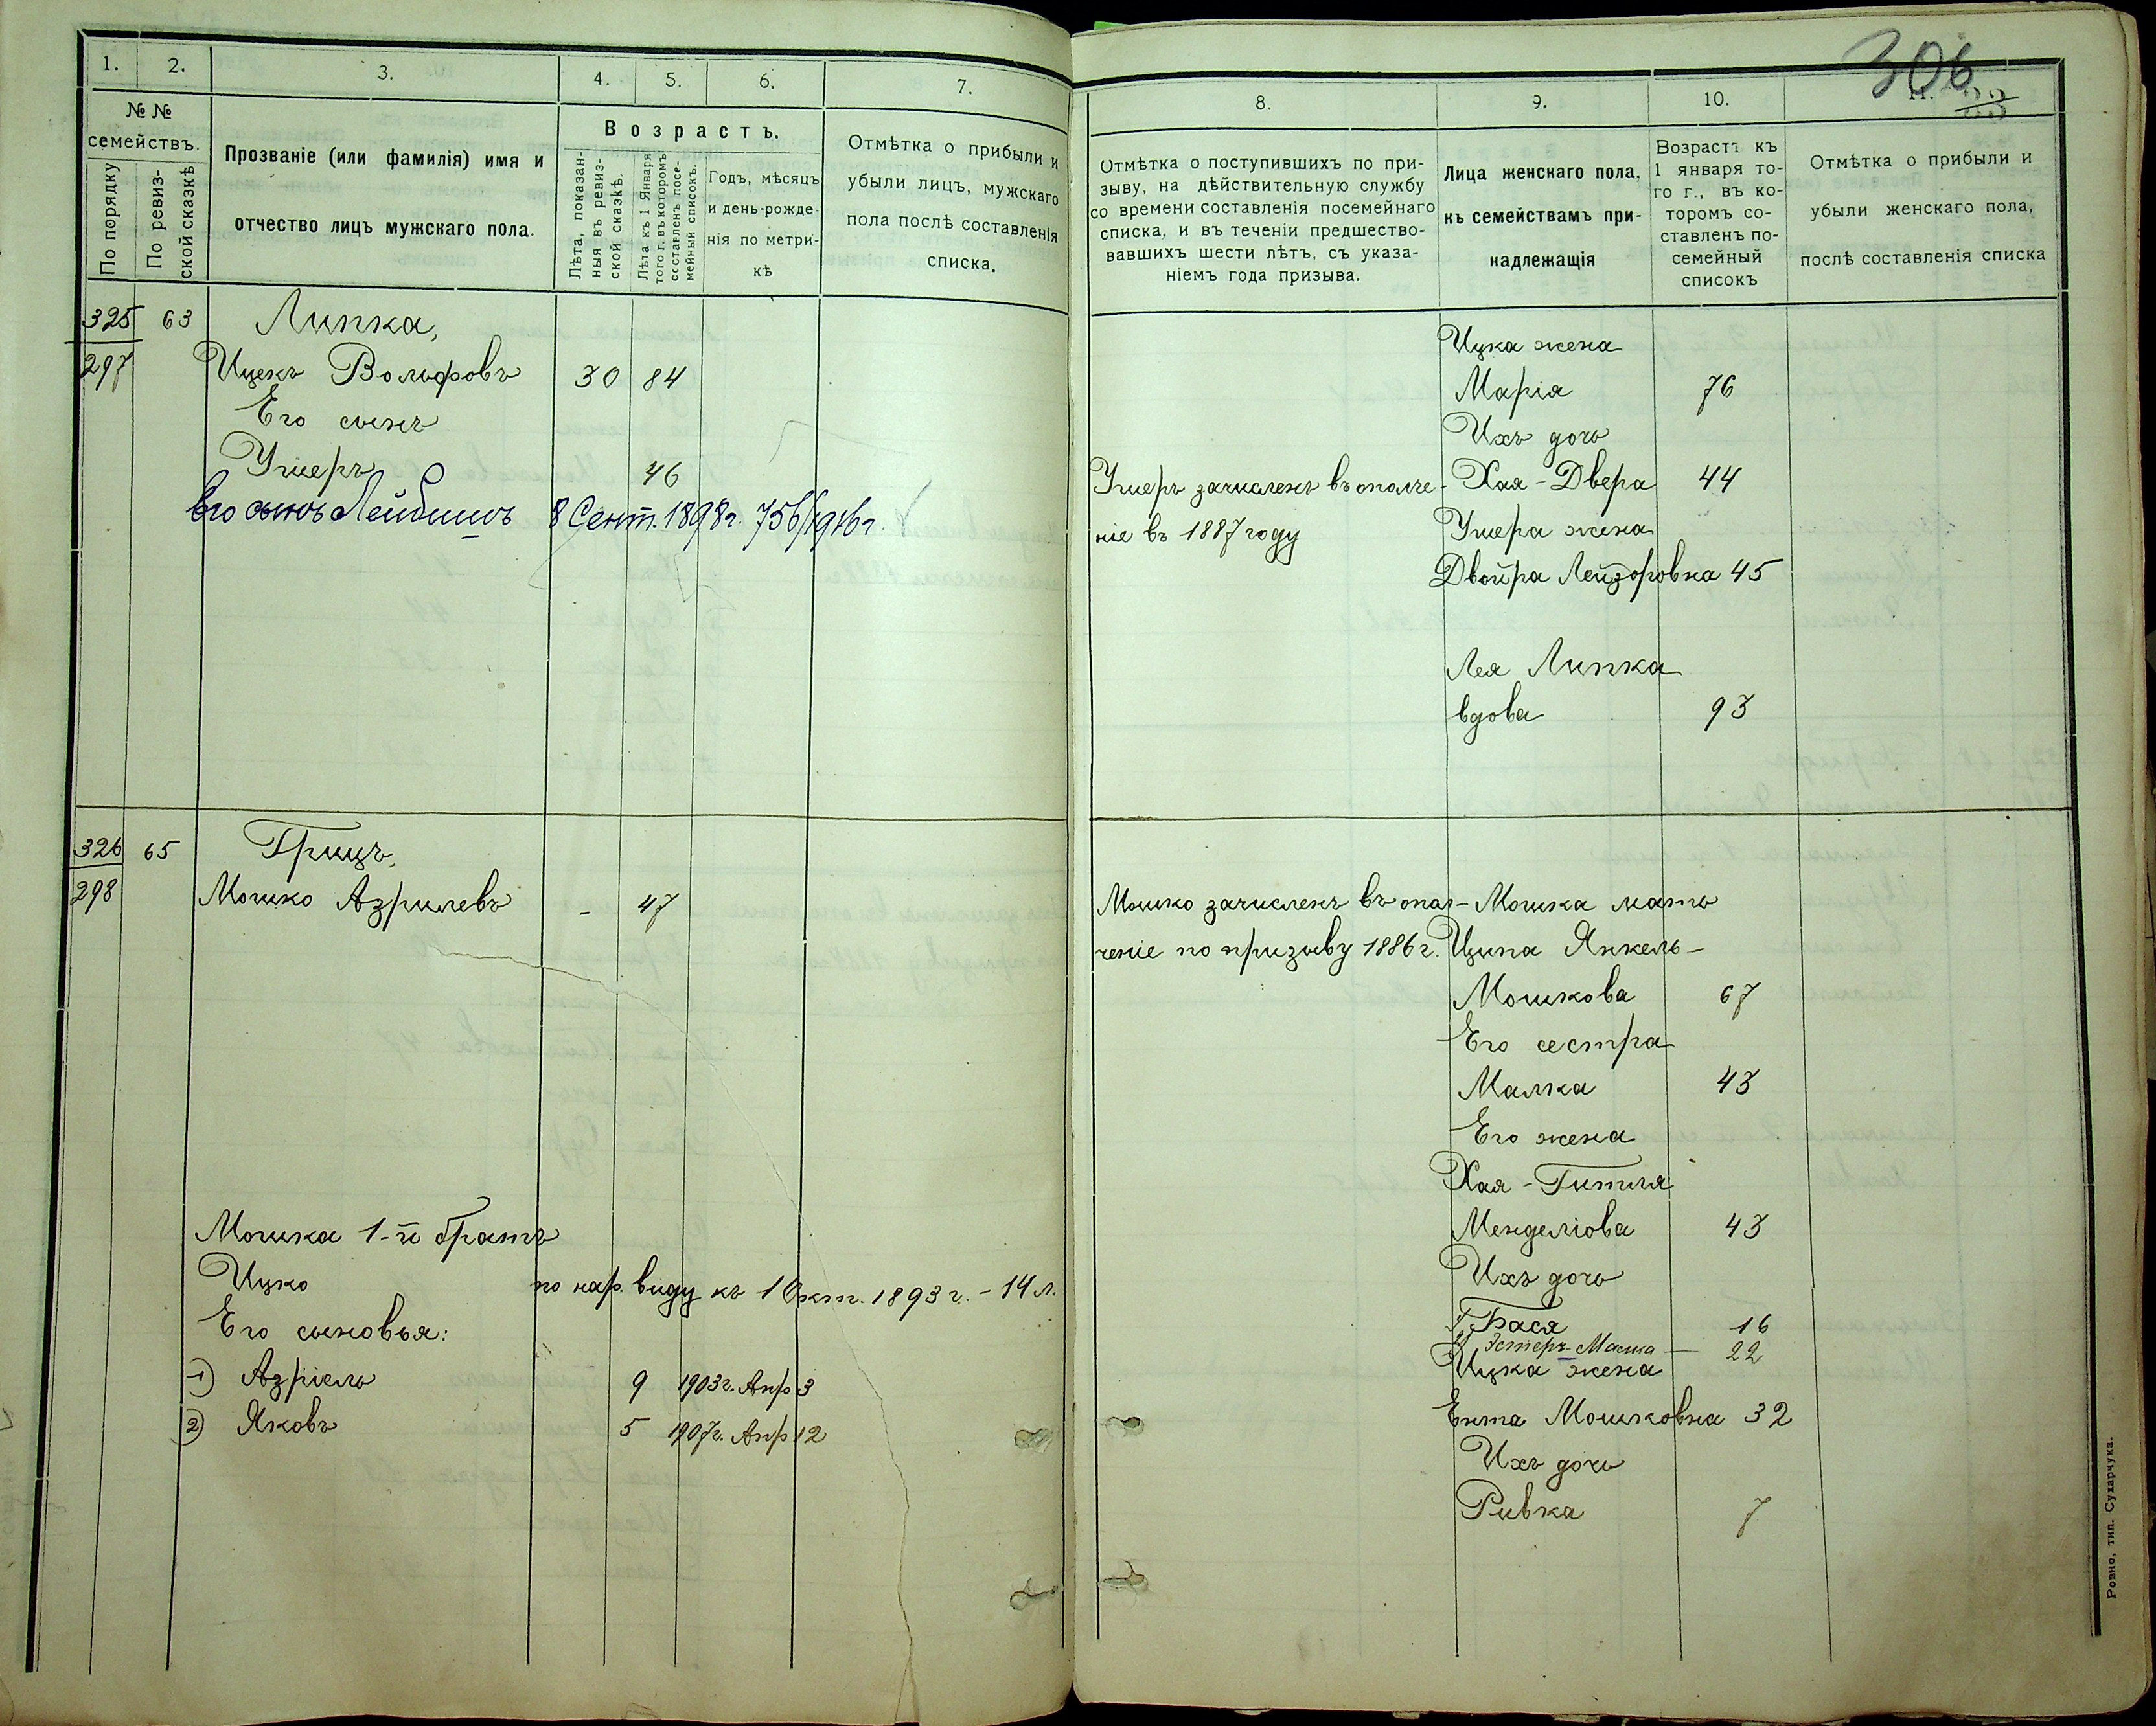 1.
2.
3.
4.
5.
6.
7.
№ №
семействъ.
По порядку
По ревиз-
ской сказкѣ
Прозваніе (или фамилія) имя и
отчество лицъ мужскаго пола.
Возрастъ.
Лѣта, показан-
ныя въ ревиз-
ской сказкѣ.
Лѣта къ 1 Января
того г. въ которомъ
составленъ посе-
мейный списокъ.
Годъ, мѣсяцъ
и день рожде-
нія по метри-
кѣ
Отмѣтка о прибыли и
убыли лицъ, мужскаго
пола послѣ составленія
списка.
325 63 Липка,
297 Ицекъ Вольфовъ 30 84
Его сынъ
Ушеръ 46
Его сынъ Лейбишъ 8 Сент. 1898 г. 756/1916 г.
326 65 Грицъ,
298 Мошко Азрилевъ - 47
Мошка 1-й братъ
Ицко по нар. виду къ 1 Окт. 1893 г. - 14 л.
Его сыновья:
1) Азріель 9 1903 г. Апр 3
2) Яковъ 5 1907 г. Апр 12
306
8.
9.
10.
11.
Отмѣтка о поступившихъ по при-
зыву, на дѣйствительную службу
со времени составленія посемейнаго
списка, и въ теченіи предшество-
вавшихъ шести лѣтъ, съ указа-
ніемъ года призыва.
Лица женскаго пола,
къ семействамъ при-
надлежащія
Возрастъ къ
1 января то-
го г., въ ко-
торомъ со-
ставленъ по-
семейный
списокъ
Отмѣтка о прибыли и
убыли женскаго пола,
послѣ составленія списка
Ицка жена
Марія 76
Ихъ дочь
Ушеръ зачисленъ въ ополче- Хая-Двера 44
ніе въ 1887 году Ушера жена
Двойра Лейзоровна 45
Лея Липка
вдова 93
Мошко зачисленъ въ опол- Мошка мать
ченіе по призыву 1886 г. Ципа Янкель-
Мошкова 67
Его сестра
Малка 43
Его жена
Хая-Гитля
Менделіова 43
Ихъ дочь
1, Бася 16
2, Эстеръ-Масия — 22
Ицка жена
Ента Мошковна 32
Ихъ дочь
Ривка 7
Ровно, тип. Сухарчука.